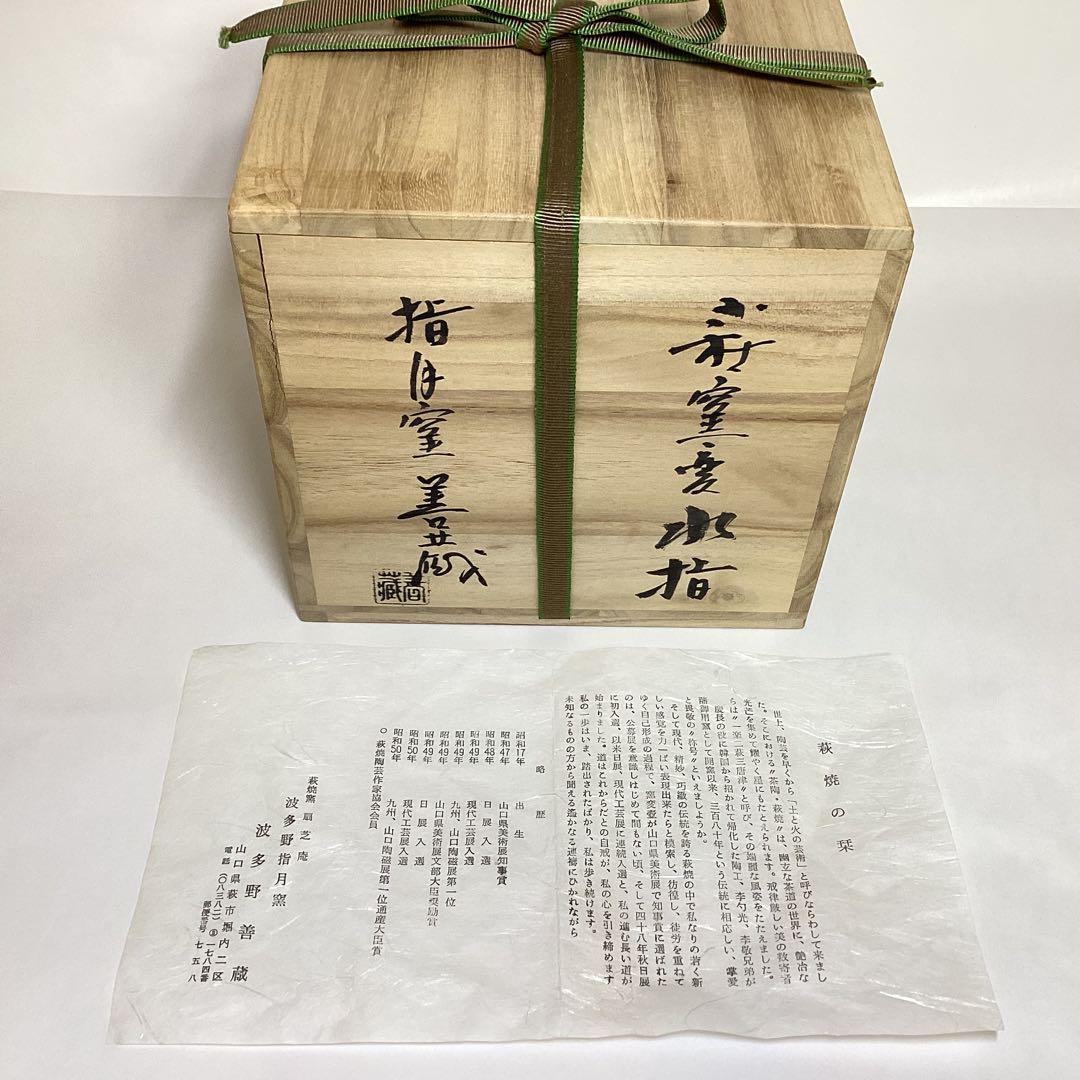 萩窯変水指
指月窯 善蔵
善蔵
萩焼の栞
世上、陶芸を早くから「土と火の芸術」と呼びならわして来まし
た。そこにおける〝茶陶・萩焼〟は、幽玄な茶道の世界に、艶冶な
光芒を集めて耀やく星にもたとえられます。戒律厳しい美の数寄者
らは〝一楽二萩三唐津〟と呼び、その端麗な風姿をたたえました。
慶長の役に韓国から招かれて帰化した陶工、李勺光、李敬兄弟が
藩御用窯として開窯以来、三百八十年という伝統に相応しい、掌愛
と畏敬の〝称号〟といえましょうか。
そして現代、精妙、巧緻の伝統を誇る萩焼の中で私なりの若く新
しい感覚を力一ぱい表現出来たらと模索し、彷徨し、徒労を重ねて
ゆく自己形成の過程で、窯変壺が山口県美術展で知事賞に選ばれた
のは、公募展を意識しはじめて間もない頃、そして四十八年秋日展
に初入選、以来日展、現代工芸展に連続入選と、私の進む長い道が
始まりました。道はこれからだとの自戒が、私の心を引き締めます
私の一歩はいま、踏出されたばかり、私は歩き続けます。
未知なるものの方から聞える遥かなる連禱にひかれながら
略歴
昭和17年 出生
昭和47年 山口県美術展知事賞
昭和48年 日展入選
昭和49年 現代工芸展入選
昭和49年 九州、山口陶磁展第一位
昭和49年 山口県美術展文部大臣奨励賞
昭和49年 日展入選
昭和50年 現代工芸展入選
昭和50年 九州、山口陶磁展第一位通産大臣賞
○ 萩焼陶芸作家協会会員
萩焼窯 扇芝庵
波多野指月窯
波多野善蔵
山口県萩市堀内二区
電話(〇八三八二)②一七八四番
郵便番号 七五八